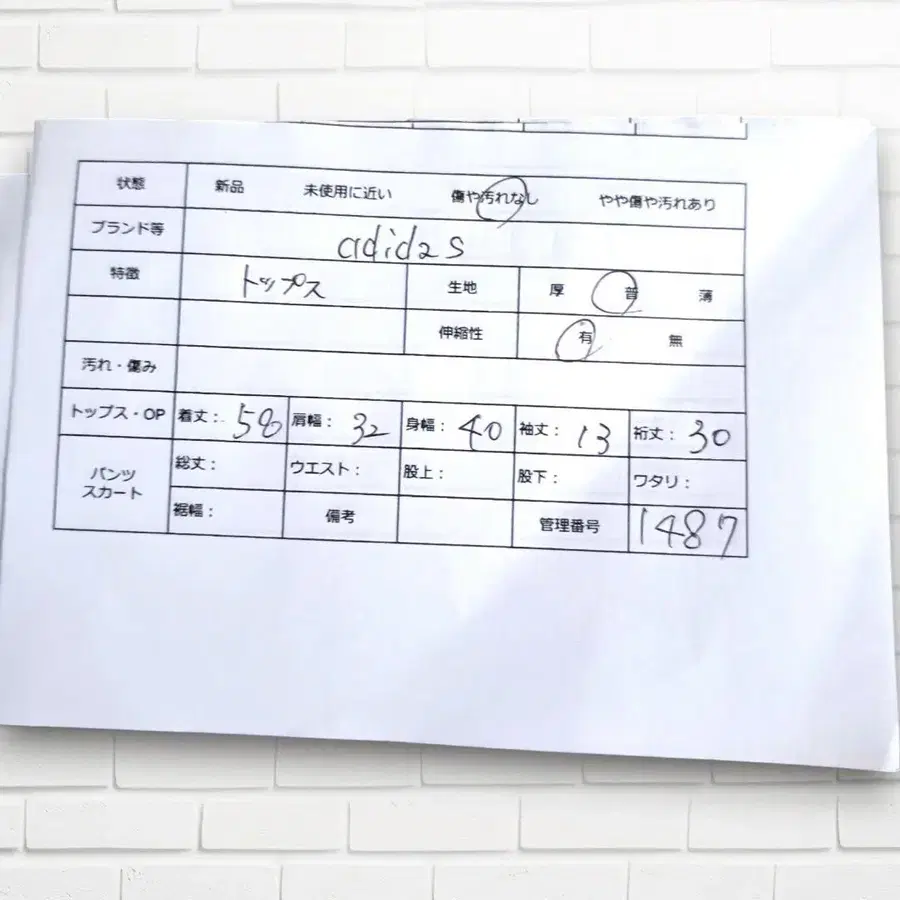 状態 新品 未使用に近い 傷や汚れなし やや傷や汚れあり
ブランド等 adidas
特徴 トップス 生地 厚 普 薄
伸縮性 有 無
汚れ・傷み
トップス・OP 着丈: 58 肩幅: 32 身幅: 40 袖丈: 13 裄丈: 30
パンツ スカート 総丈: ウエスト: 股上: 股下: ワタリ:
裾幅: 備考 管理番号 1487